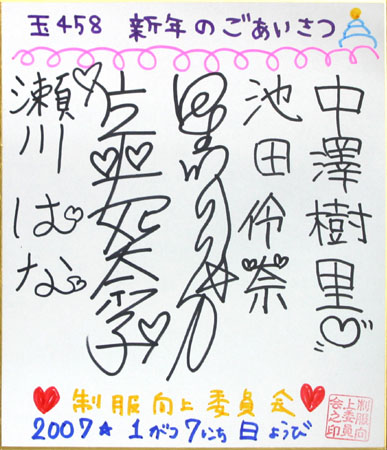 玉458 新年のごあいさつ
中澤樹里
池田伶奈
片平妃奈子
瀬川はな
制服向上委員会
2007☆1がつ7にち日ようび
制服向
上委員
会之印